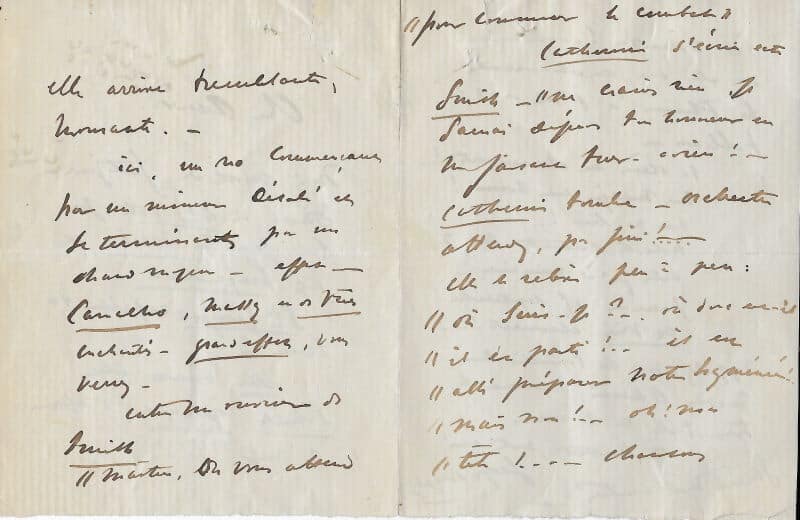 elle arrive tremblante,
mourante. —
ici, un no commençant
par un mineur désolé et
se terminant par un
chaud majeur — effet —
Carvalho, Massy et os très
enchantés — grand effet, vous
verrez —
entre un ouvrier de
Smith
"Maître, on vous attend
"pour commencer le combat"
Catherine s'écrie et
Smith — "ne crains rien, je
Samai défend ton honneur en
me faisant tuer — adieu! —
Catherine tombe — orchestre
attendez, pas fini!....
elle se relève peu à peu:
"où suis-je?... où donc est-il
"il est parti!... il est
"allé préparer notre hyménée!..
"mais non!... oh! ma
"tête!.... chassons